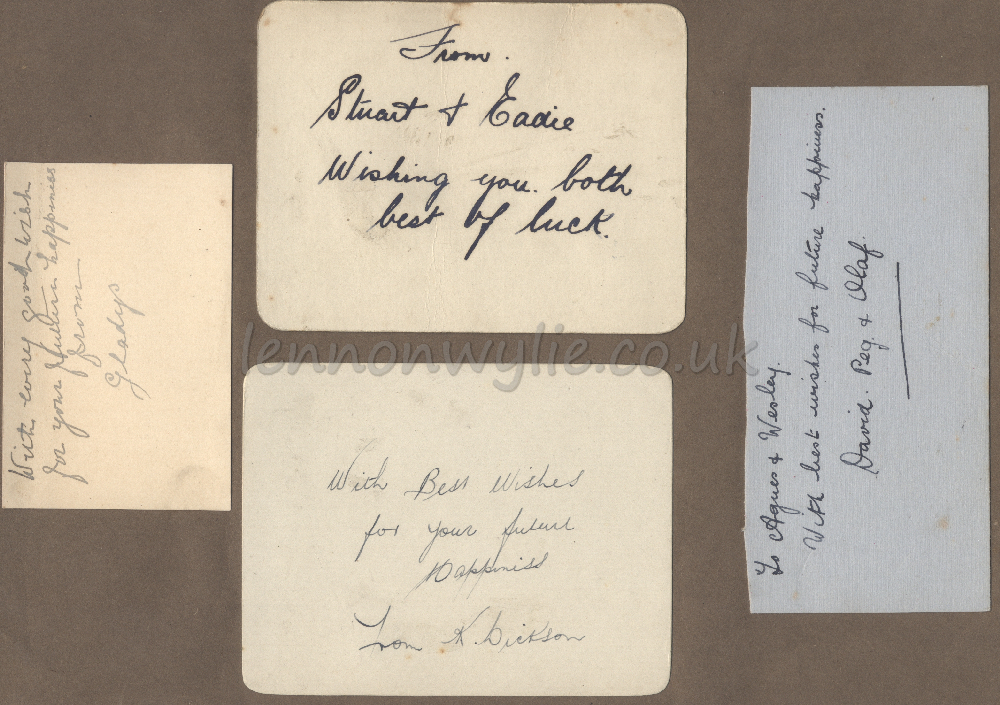 With every good wish
for your future happiness
from
Gladys
From.
Stuart & Eadie
Wishing you both
best of luck.
With Best Wishes
for your future
Happiness
From K. Dickson
To Agnes & Wesley.
With best wishes for future happiness.
David. Peg. & Olaf.
lennonwylie.co.uk